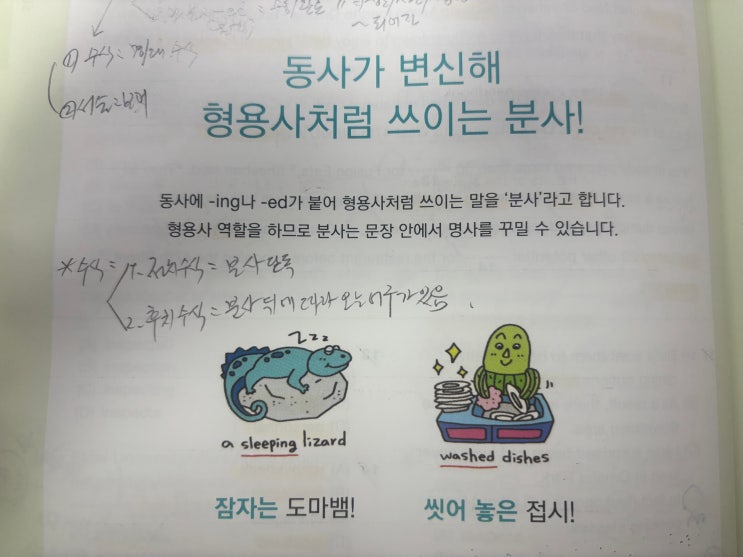 ~되어진
① 수식 =
② 서술 =
동사가 변신해
형용사처럼 쓰이는 분사!
동사에 -ing나 -ed가 붙어 형용사처럼 쓰이는 말을 ‘분사’라고 합니다.
형용사 역할을 하므로 분사는 문장 안에서 명사를 꾸밀 수 있습니다.
* 수식 = 1. 전치수식 = 분사 단독
2. 후치수식 = 분사 뒤에 따라오는 어구가 있음.
zzz
a sleeping lizard
washed dishes
잠자는 도마뱀!
씻어 놓은 접시!